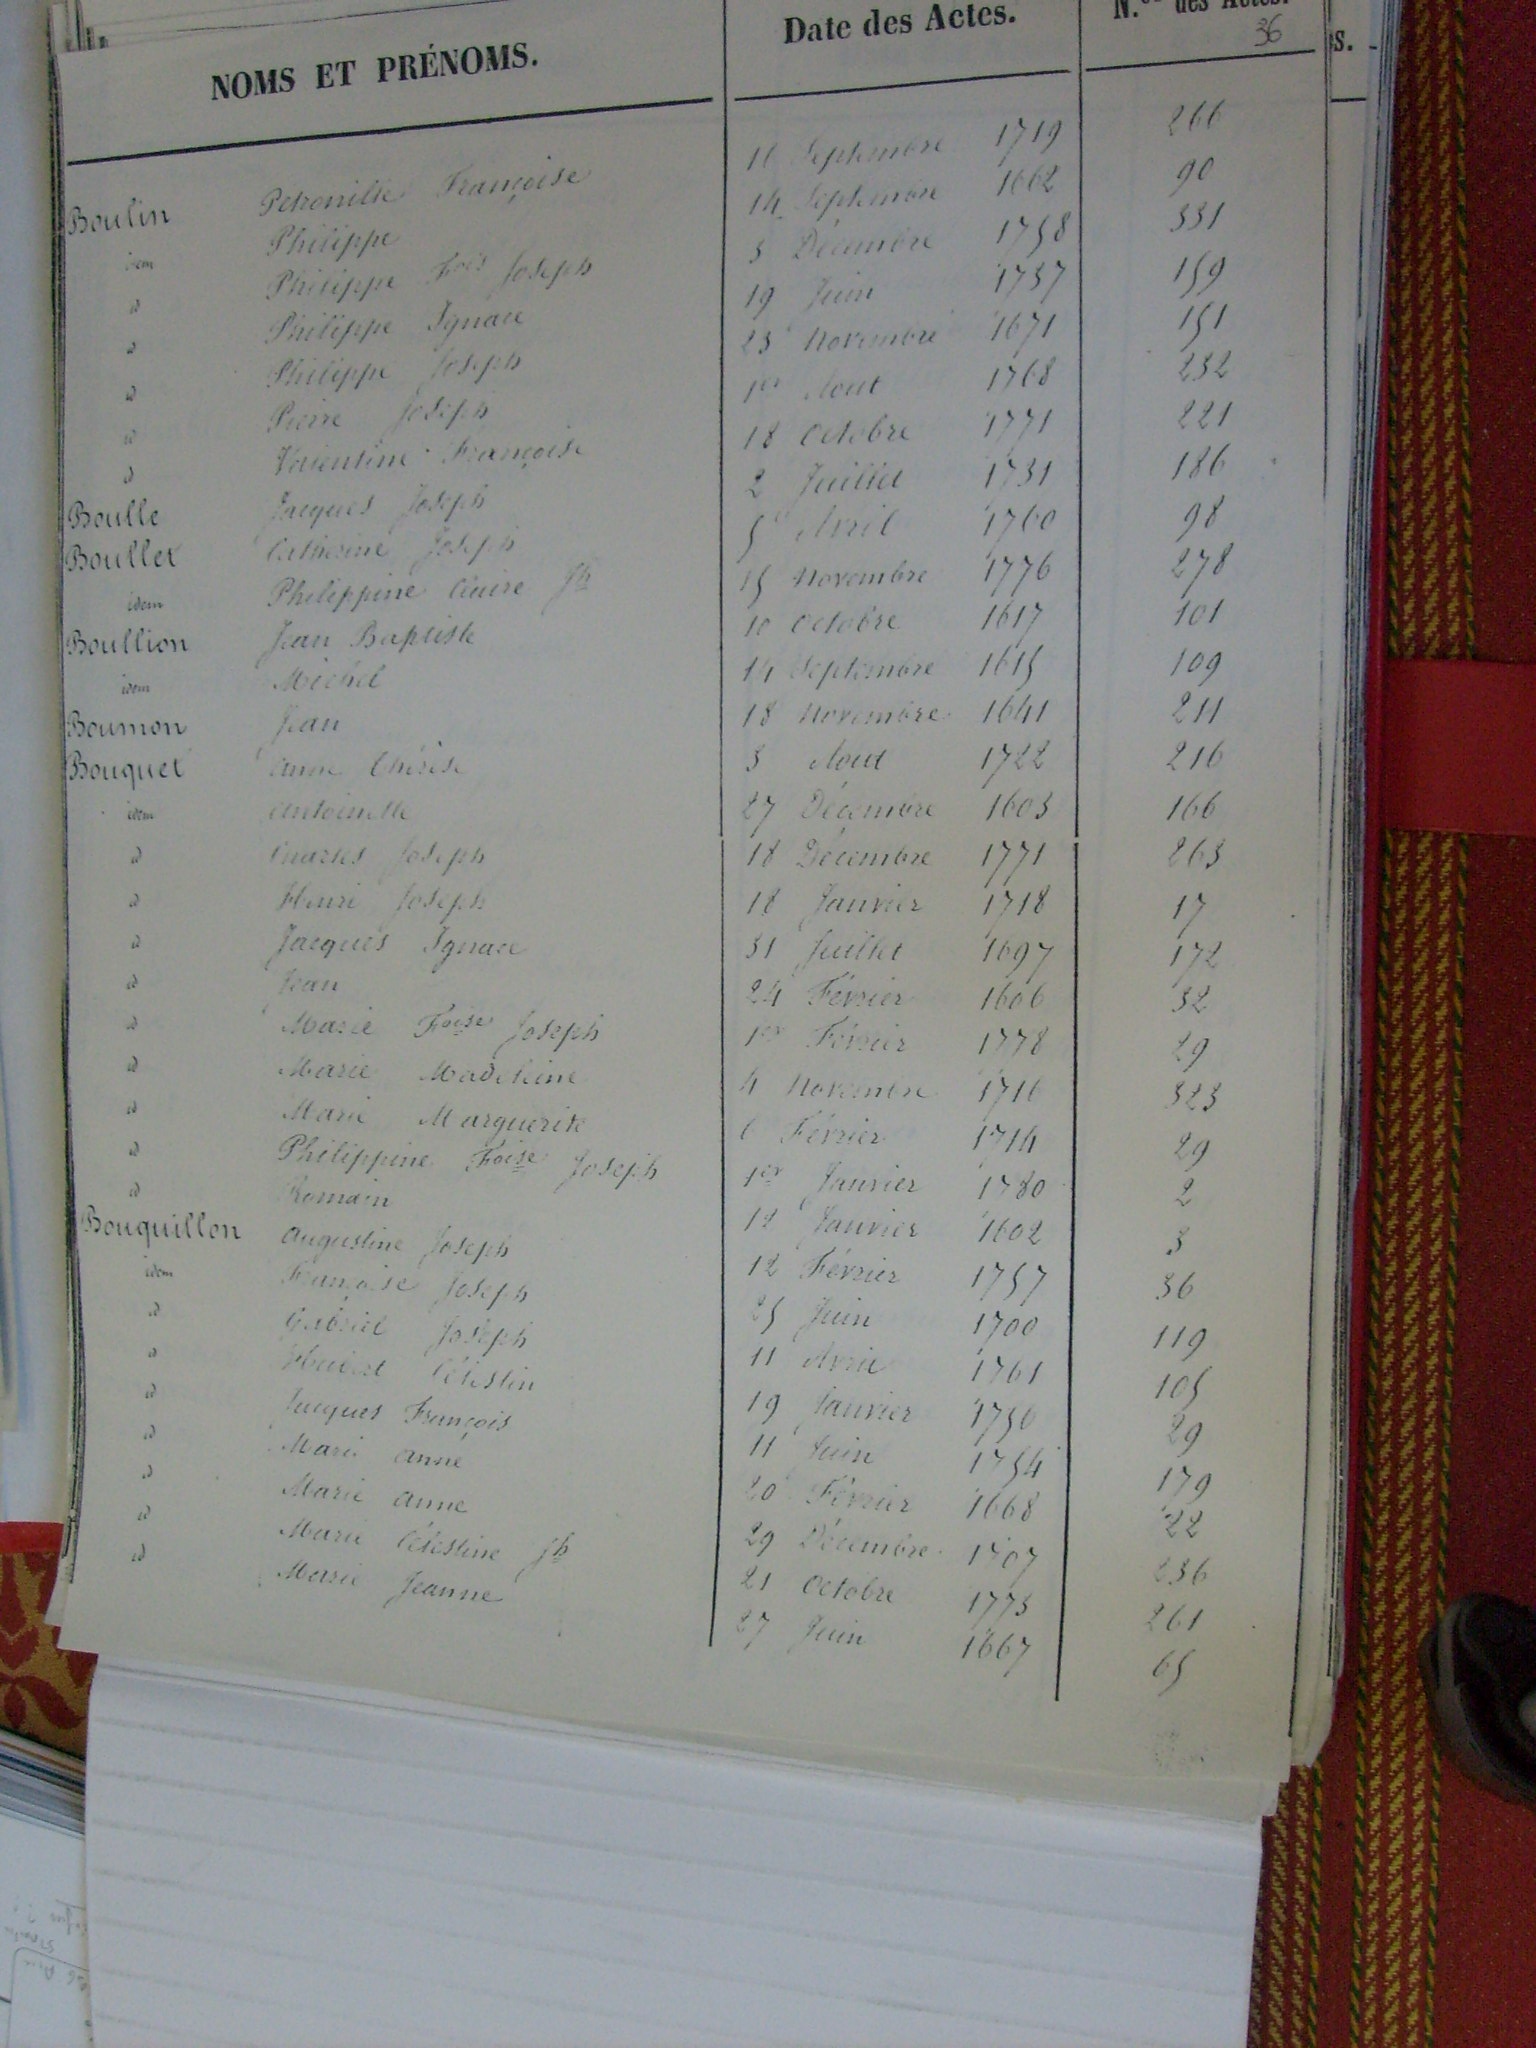 NOMS ET PRÉNOMS. Date des Actes. N.os des Actes.
36
Boulin Petronille Françoise 16 Septembre 1719 266
idem Philippe 14 Septembre 1662 90
id Philippe Fois Joseph 3 Décembre 1758 331
id Philippe Ignace 19 Juin 1737 159
id Philippe Joseph 23 Novembre 1671 151
id Pierre Joseph 1er Aout 1768 232
id Valentine Françoise 18 Octobre 1771 221
Boulle Jacques Joseph 2 Juillet 1731 186
Boullet Catherine Joseph 5 Avril 1760 98
idem Philippine Claire Jh 15 Novembre 1776 278
Boullion Jean Baptiste 10 Octobre 1617 101
idem Michel 14 Septembre 1615 109
Boumon Jean 18 Novembre 1641 211
Bouquet Anne Thérèse 3 Aout 1722 216
idem Antoinette 27 Décembre 1603 166
id Charles Joseph 18 Décembre 1771 263
id Henri Joseph 18 Janvier 1718 17
id Jacques Ignace 31 Juillet 1697 172
id Jean 24 Février 1606 32
id Marie Foise Joseph 1er Février 1778 29
id Marie Madeleine 4 Novembre 1716 323
id Marie Marguerite 6 Février 1714 29
id Philippine Foise Joseph 1er Janvier 1780 2
id Romain 12 Janvier 1602 3
Bouquillon Augustine Joseph 12 Février 1757 36
idem Françoise Joseph 25 Juin 1700 119
id Gabriel Joseph 11 Avril 1761 105
id Hubert Célestin 19 Janvier 1756 29
id Jacques François 11 Juin 1754 179
id Marie Anne 20 Février 1668 22
id Marie Anne 29 Décembre 1707 236
id Marie Célestine Jh 21 Octobre 1773 261
id Marie Jeanne 27 Juin 1667 65